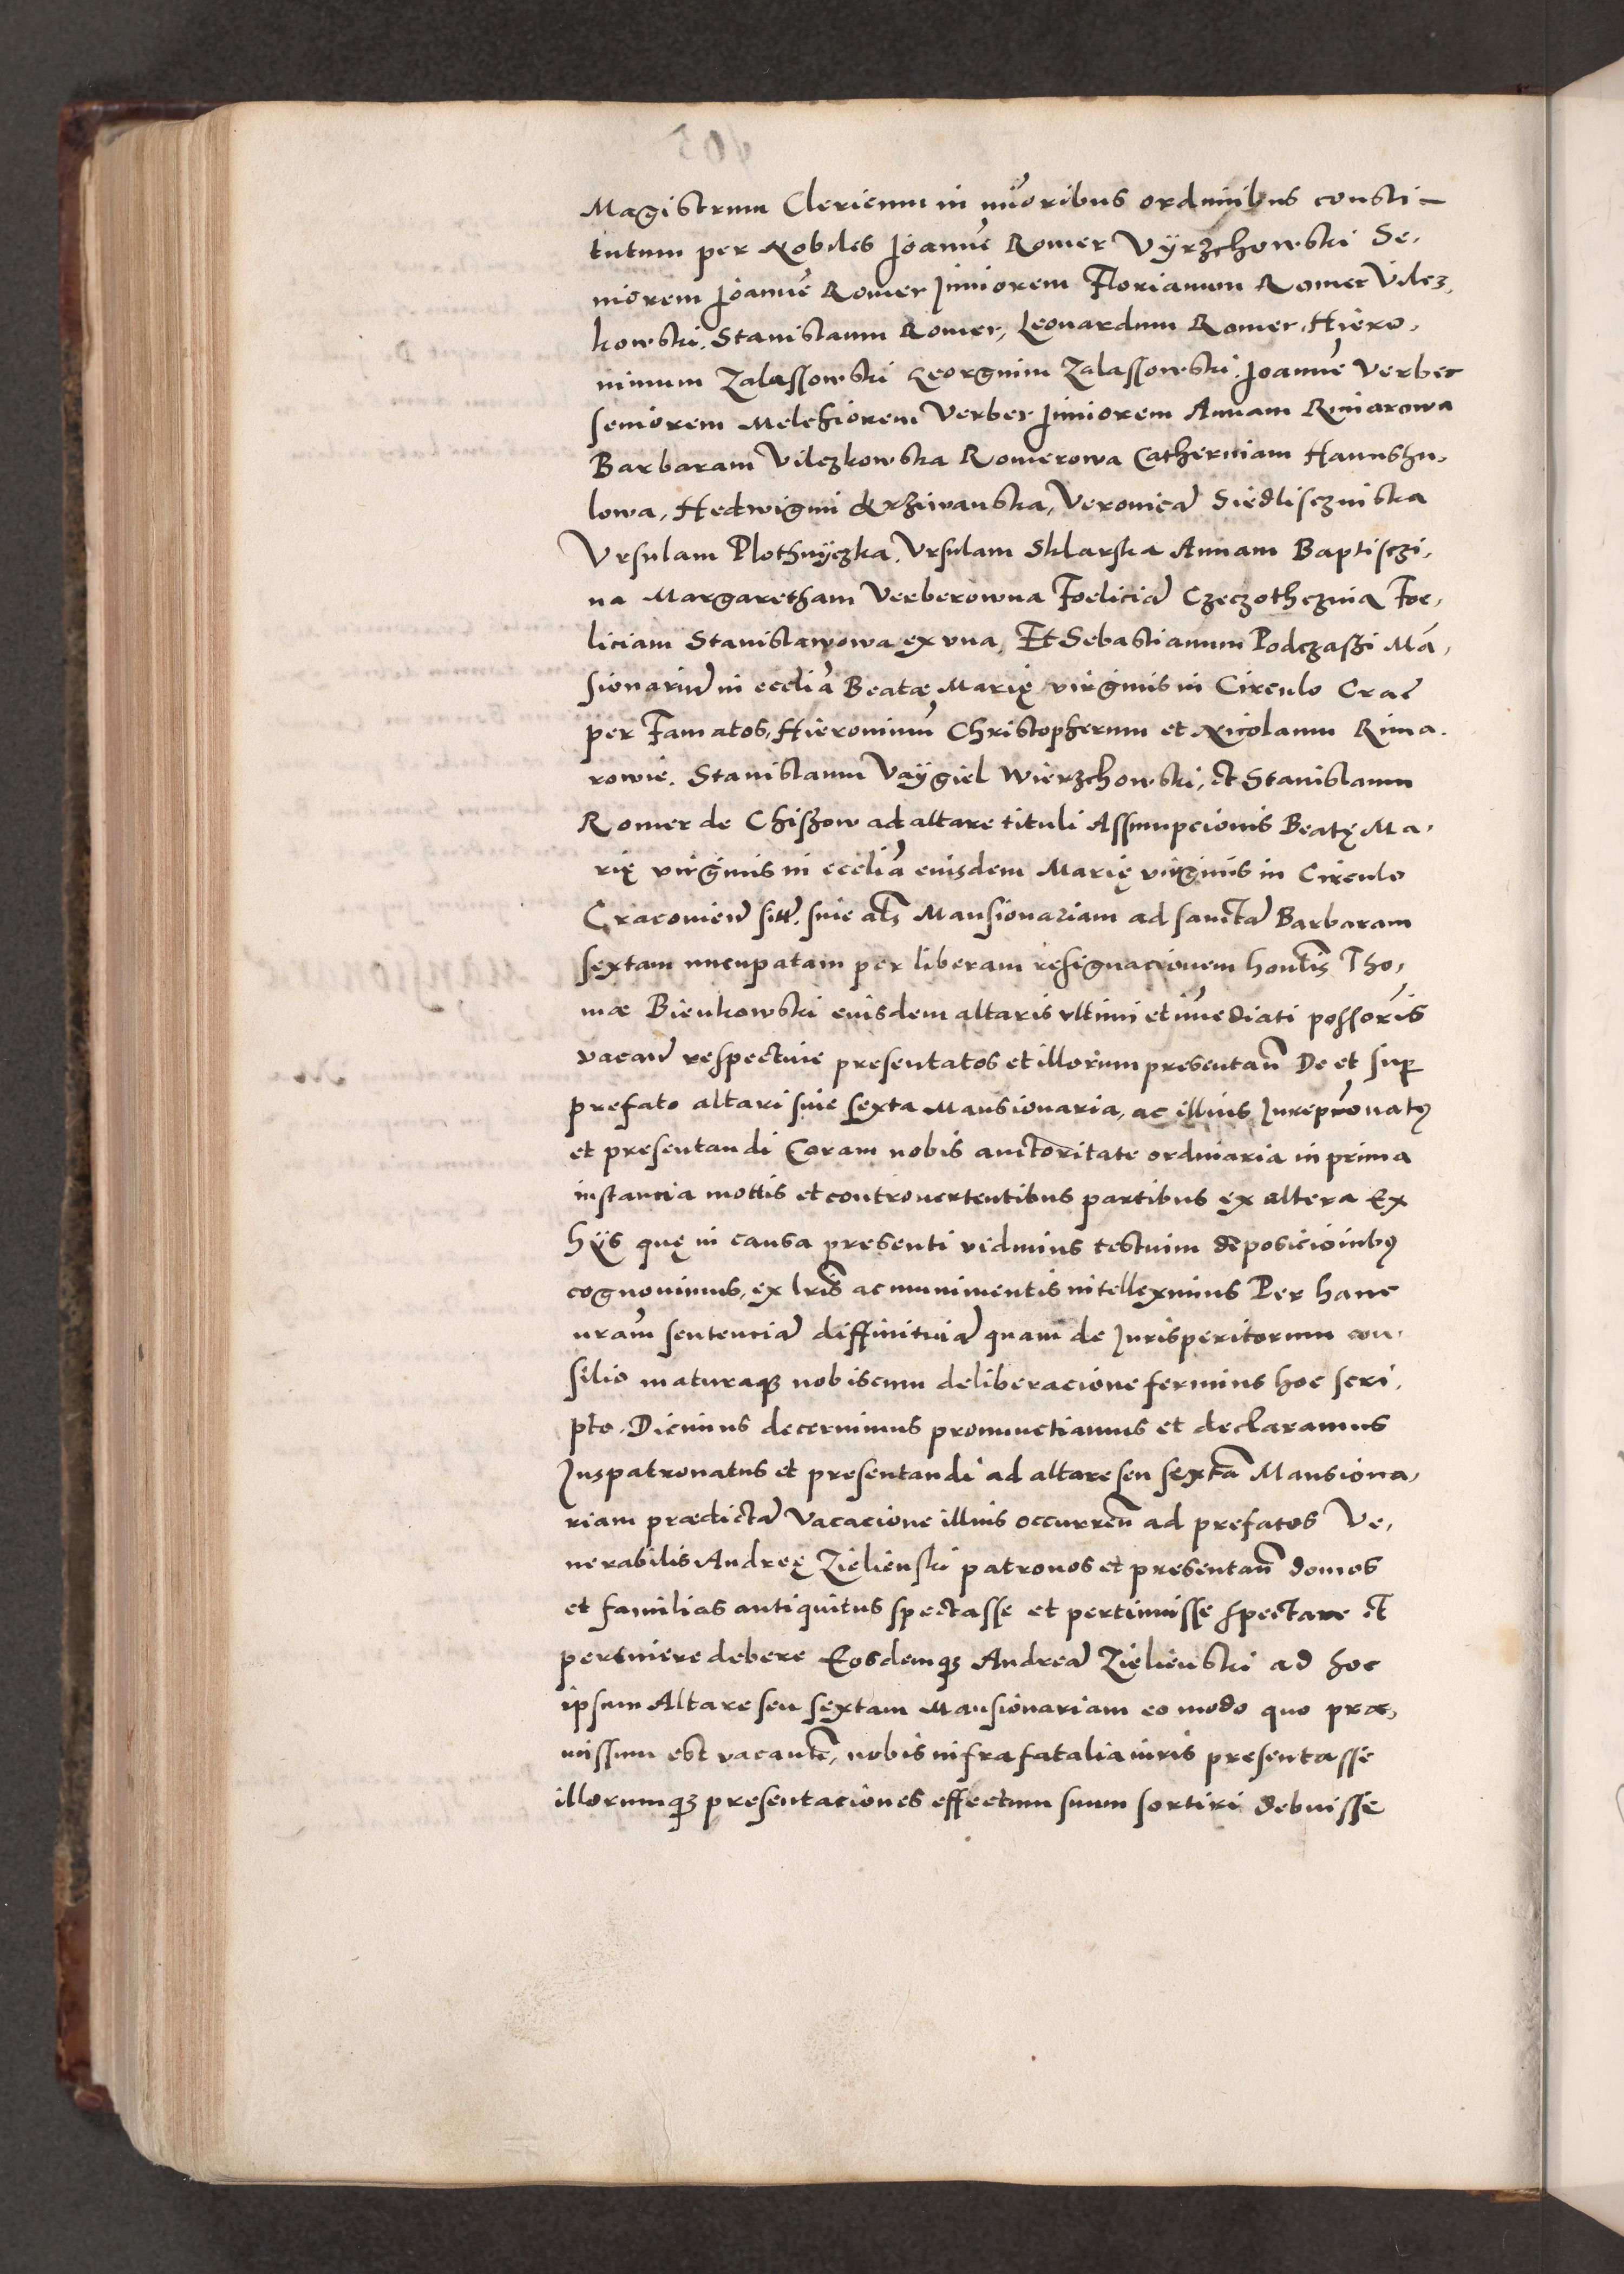 Magistrum Clericum in mīoribus ordinibus consti-
tutum per Nobiles Joannē Romer Vÿrzchowski Se,
niorem Joannē Romer Juniorem Florianum Romer Vilcz,
kowski. Stanislaum Romer, Leonardum Romer, Hiero,
nimum Zalassowski Georgium Zalassowski. Joannē Verber
seniorem Melchiorem Verber Juniorem Annam Rimarowa
Barbaram Vilczkowska Romerowa Catherinam Hannshu,
lowa, Hedwigim Krziwanska, Veronicā Siedlisczinska
Vrsulam Plothnÿczka. Vrsulam Sklarska Annam Baptisczi,
na Margaretham Verberowna Foeliciā Czeczothczina Foe,
liciam Stanislawowa ex vna, Et Sebastianum Podczaszi Mā,
sionariū in eccliā Beatae Marię virginis in Circulo Crac̄
per Famatos, Hieronimū Christopherum et Nicolaum Rima.
rowie. Stanislaum Vaÿgiel Wierzchowski, et Stanislaum
Romer de Chiszow ad altare tituli Assumpcionis Beatę Ma,
rię virginis in eccliā eiusdem Marię virginis in Circulo
Cracovieñ sitt̄. siue al̄s Mansionariam ad sanctā Barbaram
sextam nncupatam per liberam resignacionem hon̄tis Tho,
mae Bienkowski eiusdem altaris vltimi et im̄ediati possōris
vacañ respectiue presentatos et illorum presentañ De et sup̄
prefato altari siue sexta Mansionaria, ac illius Jurepr̄onatꝰ
et presentandi Coram nobis auctoritate ordinaria in prima
instancia mottis et controuertentibus partibus ex altera Ex
hÿs quę in causa presenti vidimus testium deposicioinbꝰ
cognouimus, ex lr̄is ac munimentis intelleximus Per hanc
nram̄ sentenciā diffinitiuā quam de Jurisperitorum con,
silio maturaqꝫ nobiscum deliberacione ferimus hoc scri,
pto. Dicimus decernimus pronunctiamus et declaramus
Juspatronatus et presentandi ad altare seu sextā Mansiona,
riam praedictā Vacacione illius occurreñ ad prefatos Ve,
nerabilis Andreę Zielienski patronos et presentañ domos
et familias antiquitus spectasse et pertinuisse spectare et
pertinere debere Eosdemqꝫ Andreā Zielienski ad hoc
ipsum Altare seu sextam Mansionariam eo modo quo prae,
missum est vacantē, nobis infra fatalia iuris presentasse
illorumqꝫ presentaciones effectum suum sortiri debuisse